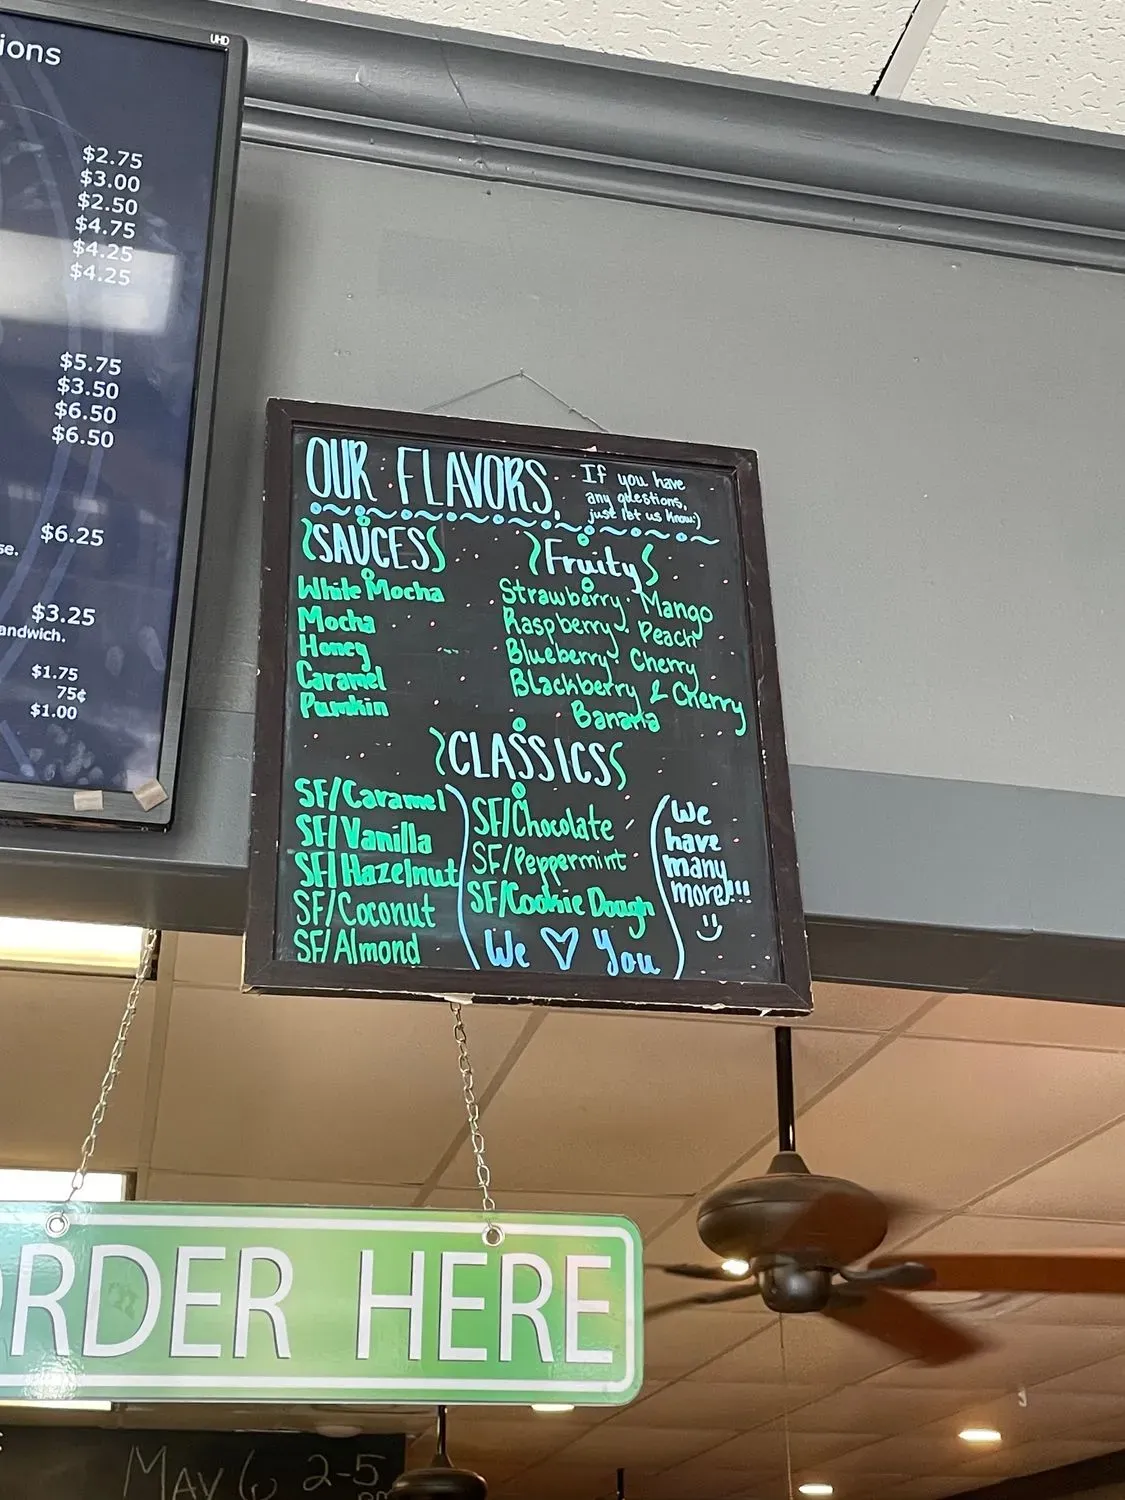 ions
UHD
$2.75
$3.00
$2.50
$4.75
$4.25
$4.25
$5.75
$3.50
$6.50
$6.50
$6.25
se.
$3.25
andwich.
$1.75
75¢
$1.00
OUR FLAVORS.
If you have
any questions,
just let us know:)
SAUCES
White Mocha
Mocha
Honey
Caramel
Pumkin
Fruity
Strawberry · Mango
Raspberry · Peach
Blueberry · Cherry
Blackberry & Cherry
Banana
CLASSICS
SF/Caramel
SF/Vanilla
SF/Hazelnut
SF/Coconut
SF/Almond
SF/Chocolate
SF/Peppermint
SF/Cookie Dough
We ♡ You
We
have
many
more!!!
RDER HERE
MAY 6 2-5